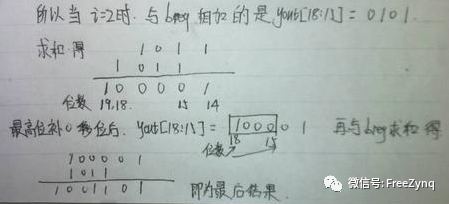 所以当 i=2时, 与breg 相加的是 yout[18:15] = 0101.
求和 得
1 0 1 1
1 0 1 1
1 0 0 0 0 1
位数 19,18. 15 14
最高位补0移位后. yout[18:15] = 1000 0 1 再与breg求和 得
位数 18 15
1 0 0 0 0 1
1 0 1 1
1 0 0 1 1 0 1 即为最后结果.
微信号: FreeZynq